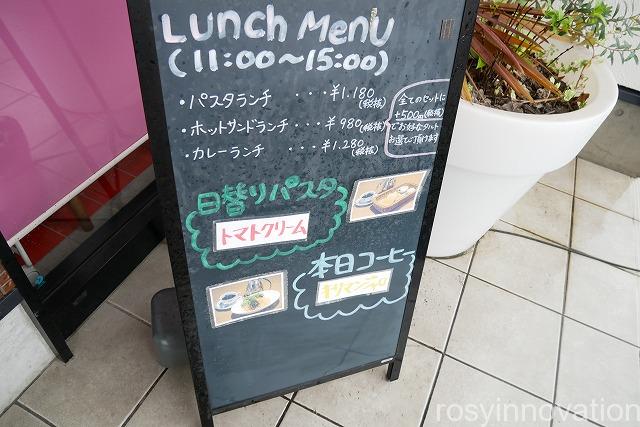 LUNCH MENU
(11:00～15:00)
・パスタランチ ・・・¥1.180
(税抜)
・ホットサンドランチ・・・¥980
(税抜)
・カレーランチ ・・・¥1.280
(税抜)
全てのセットに
+500円(税抜)
でお好なタルト
お選びご頂けます
日替りパスタ
トマトクリーム
本日コーヒー
キリマンジャロ
rosyinnovation